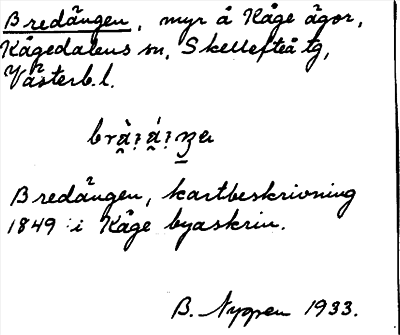 Bredången, myr å Kåge ägor,
Kågedalens sn, Skellefteå tg,
Västerb.l.
Bredången, kartbeskrivning
1849 i Kåge byaskrin.
B. Nyppen 1933.